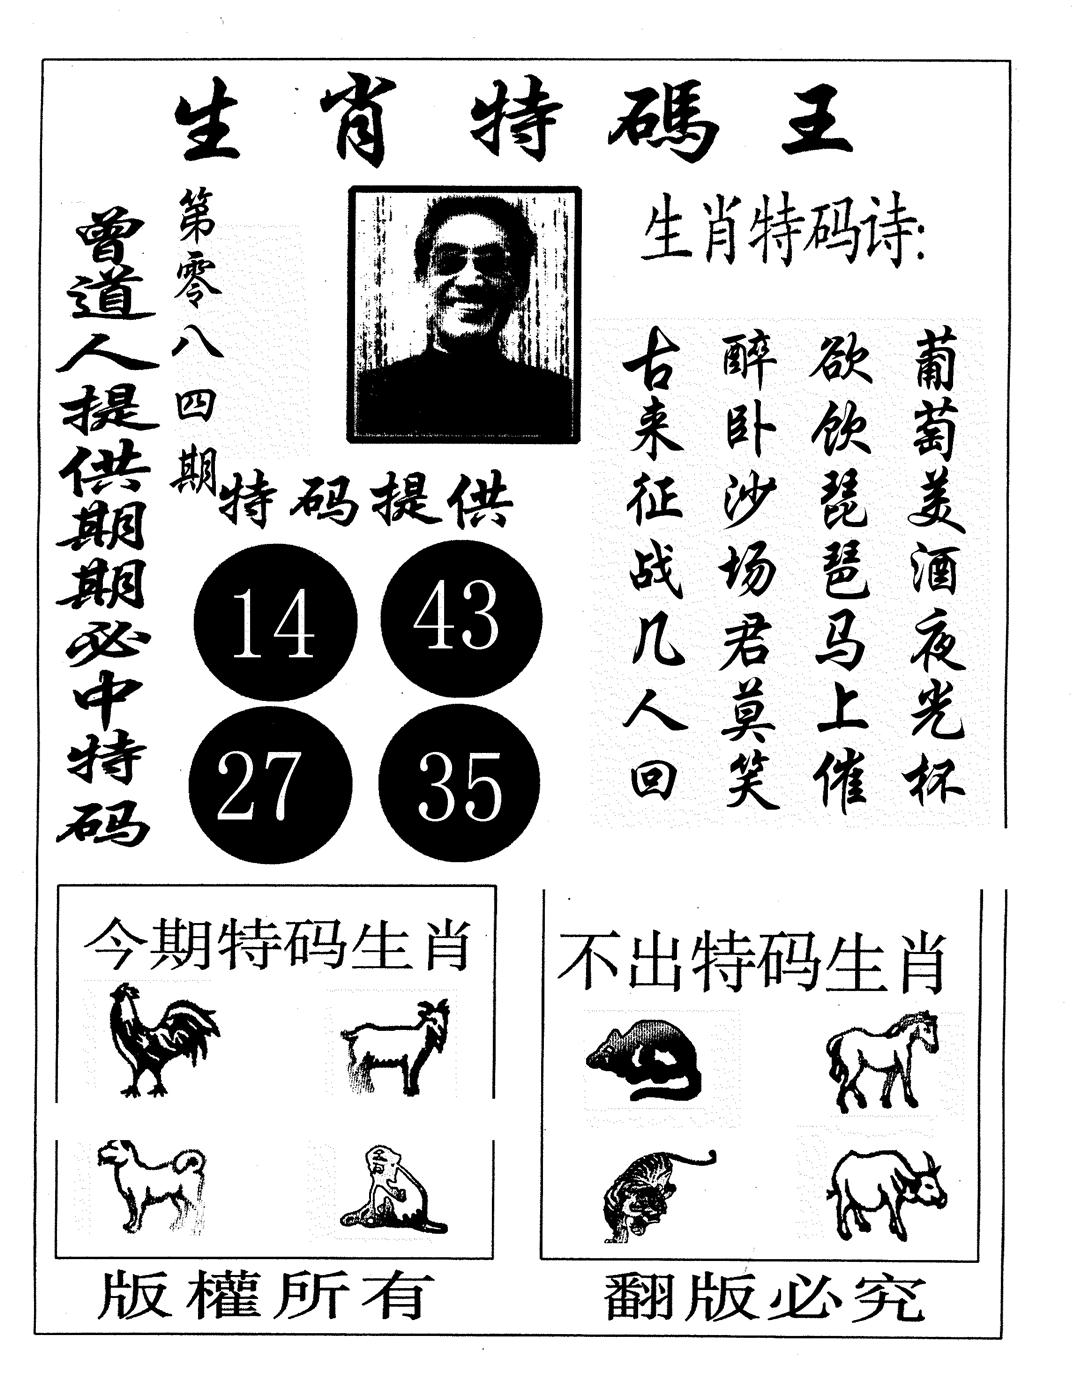 生肖特碼王
曾道人提供期期必中特码
第零八四期
特码提供
14 43
27 35
生肖特码诗:
葡萄美酒夜光杯
欲饮琵琶马上催
醉卧沙场君莫笑
古来征战几人回
今期特码生肖
不出特码生肖
版權所有
翻版必究